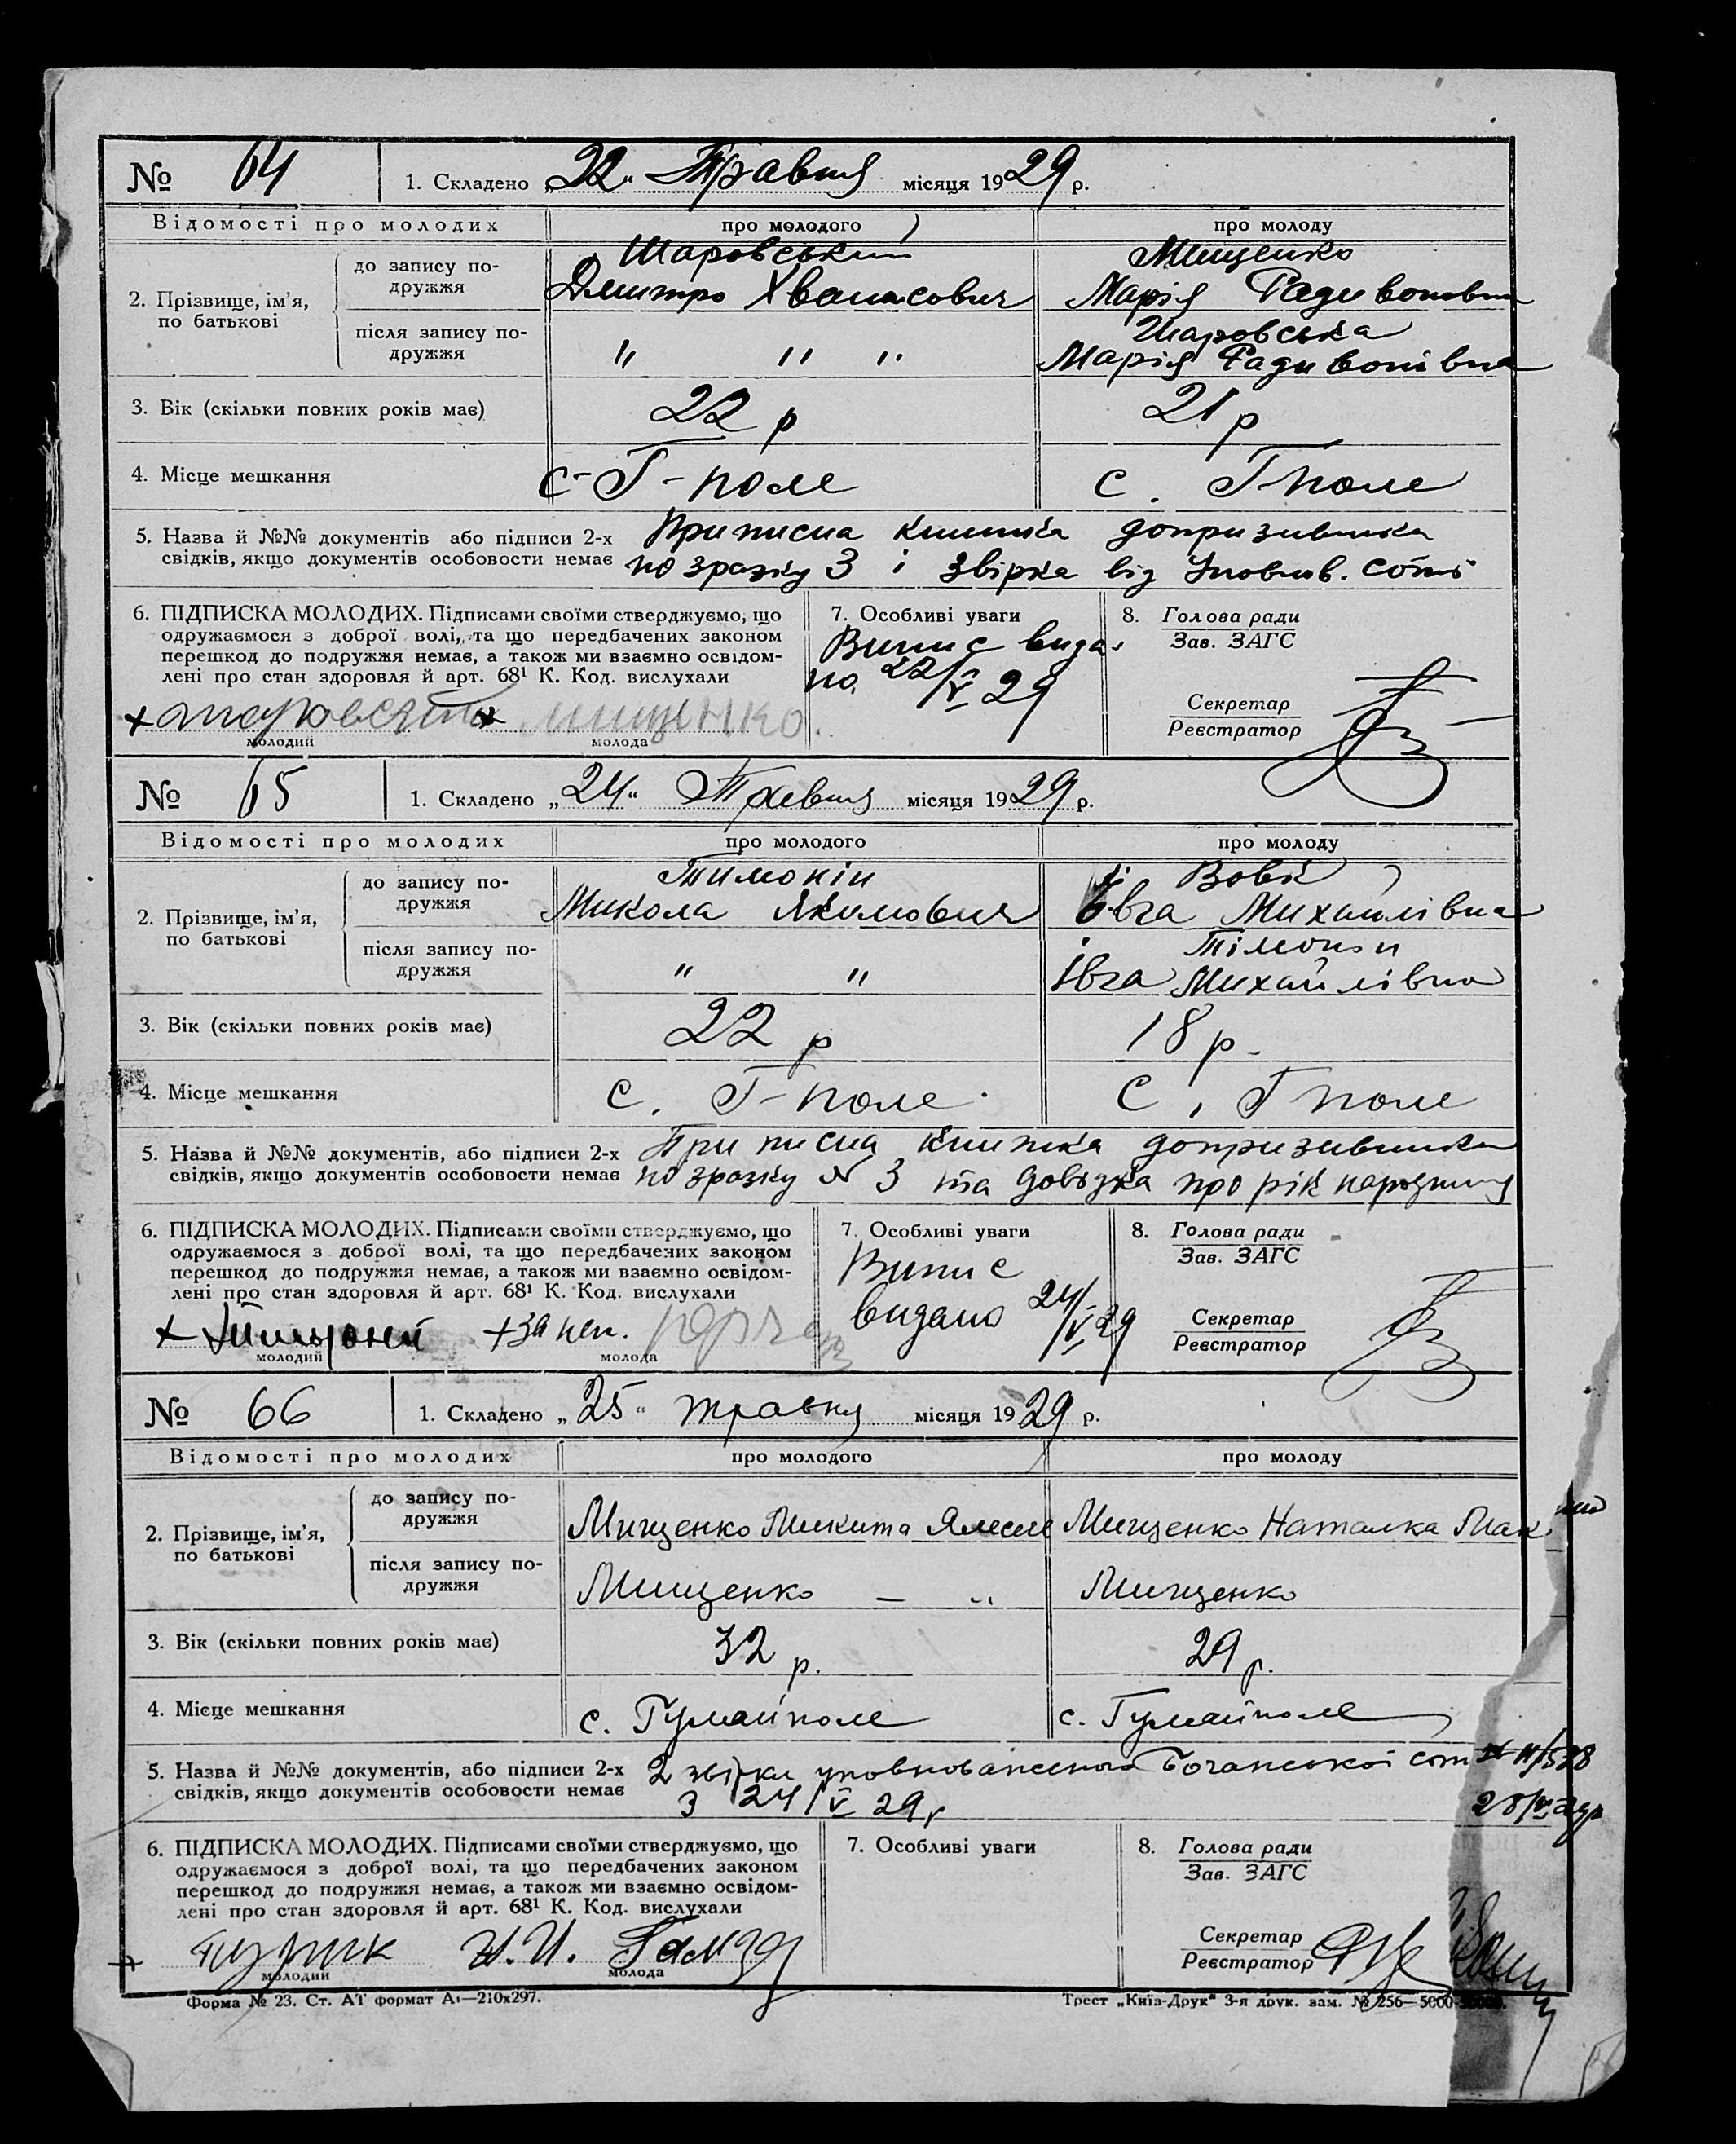 № 64 1. Складено „22“ Травня місяця 1929 р.
Відомості про молодих про молодого про молоду
2. Прізвище, ім'я, по батькові
до запису по-
дружжя
Шаровський
Дмитро Хванасович
Мищенко
Марія Радивонівна
після запису по-
дружжя
" " "
Шаровська
Марія Радивонівна
3. Вік (скільки повних років має) 22 р 21 р
4. Місце мешкання с-Г-поле с. Гполе
5. Назва й №№ документів або підписи 2-х Приписна книжка допризивника
свідків, якщо документів особовости немає по зразку 3 і звірка від Уповнов. сотні
6. ПІДПИСКА МОЛОДИХ. Підписами своїми стверджуємо, що
одружаємося з доброї волі, та що передбачених законом
перешкод до подружжя немає, а також ми взаємно освідом-
лені про стан здоров'я й арт. 68¹ К. Код. вислухали
+ + Мищенко.
молодий молода
7. Особливі уваги
Випис вида-
но 22/V 29
8. Голова ради
Зав. ЗАГС
Секретар
Реєстратор
№ 65 1. Складено „24“ Травня місяця 1929 р.
Відомості про молодих про молодого про молоду
2. Прізвище, ім'я, по батькові
до запису по-
дружжя
Тимокін
Микола Якимович
Вовк
Івга Михайлівна
після запису по-
дружжя
" "
Івга Михайлівна
3. Вік (скільки повних років має) 22 р 18 р.
4. Місце мешкання с. Г-поле. с. Гполе
5. Назва й №№ документів, або підписи 2-х Приписна книжка допризивника
свідків, якщо документів особовости немає по зразку N 3 та довідка про рік народження
6. ПІДПИСКА МОЛОДИХ. Підписами своїми стверджуємо, що
одружаємося з доброї волі, та що передбачених законом
перешкод до подружжя немає, а також ми взаємно освідом-
лені про стан здоров'я й арт. 68¹ К. Код. вислухали
+ + за неп.
молодий молода
7. Особливі уваги
Випис
видано 24/V 29
8. Голова ради
Зав. ЗАГС
Секретар
Реєстратор
№ 66 1. Складено „25“ травня місяця 1929 р.
Відомості про молодих про молодого про молоду
2. Прізвище, ім'я, по батькові
до запису по-
дружжя
Мищенко Микита
Мищенко Наталка Мак.
після запису по-
дружжя
Мищенко — "
Мищенко
3. Вік (скільки повних років має) 32 р. 29 р.
4. Місце мешкання с. Гуляйполе с. Гуляйполе
5. Назва й №№ документів, або підписи 2-х 2 звірки уповноваженого сот
свідків, якщо документів особовости немає з 24/V 29 р
6. ПІДПИСКА МОЛОДИХ. Підписами своїми стверджуємо, що
одружаємося з доброї волі, та що передбачених законом
перешкод до подружжя немає, а також ми взаємно освідом-
лені про стан здоров'я й арт. 68¹ К. Код. вислухали
+
молодий молода
7. Особливі уваги
8. Голова ради
Зав. ЗАГС
Секретар
Реєстратор
Форма № 23. Ст. АТ формат А₄—210х297. Трест „Київ-Друк“ 3-я друк. зам. № 256—5000